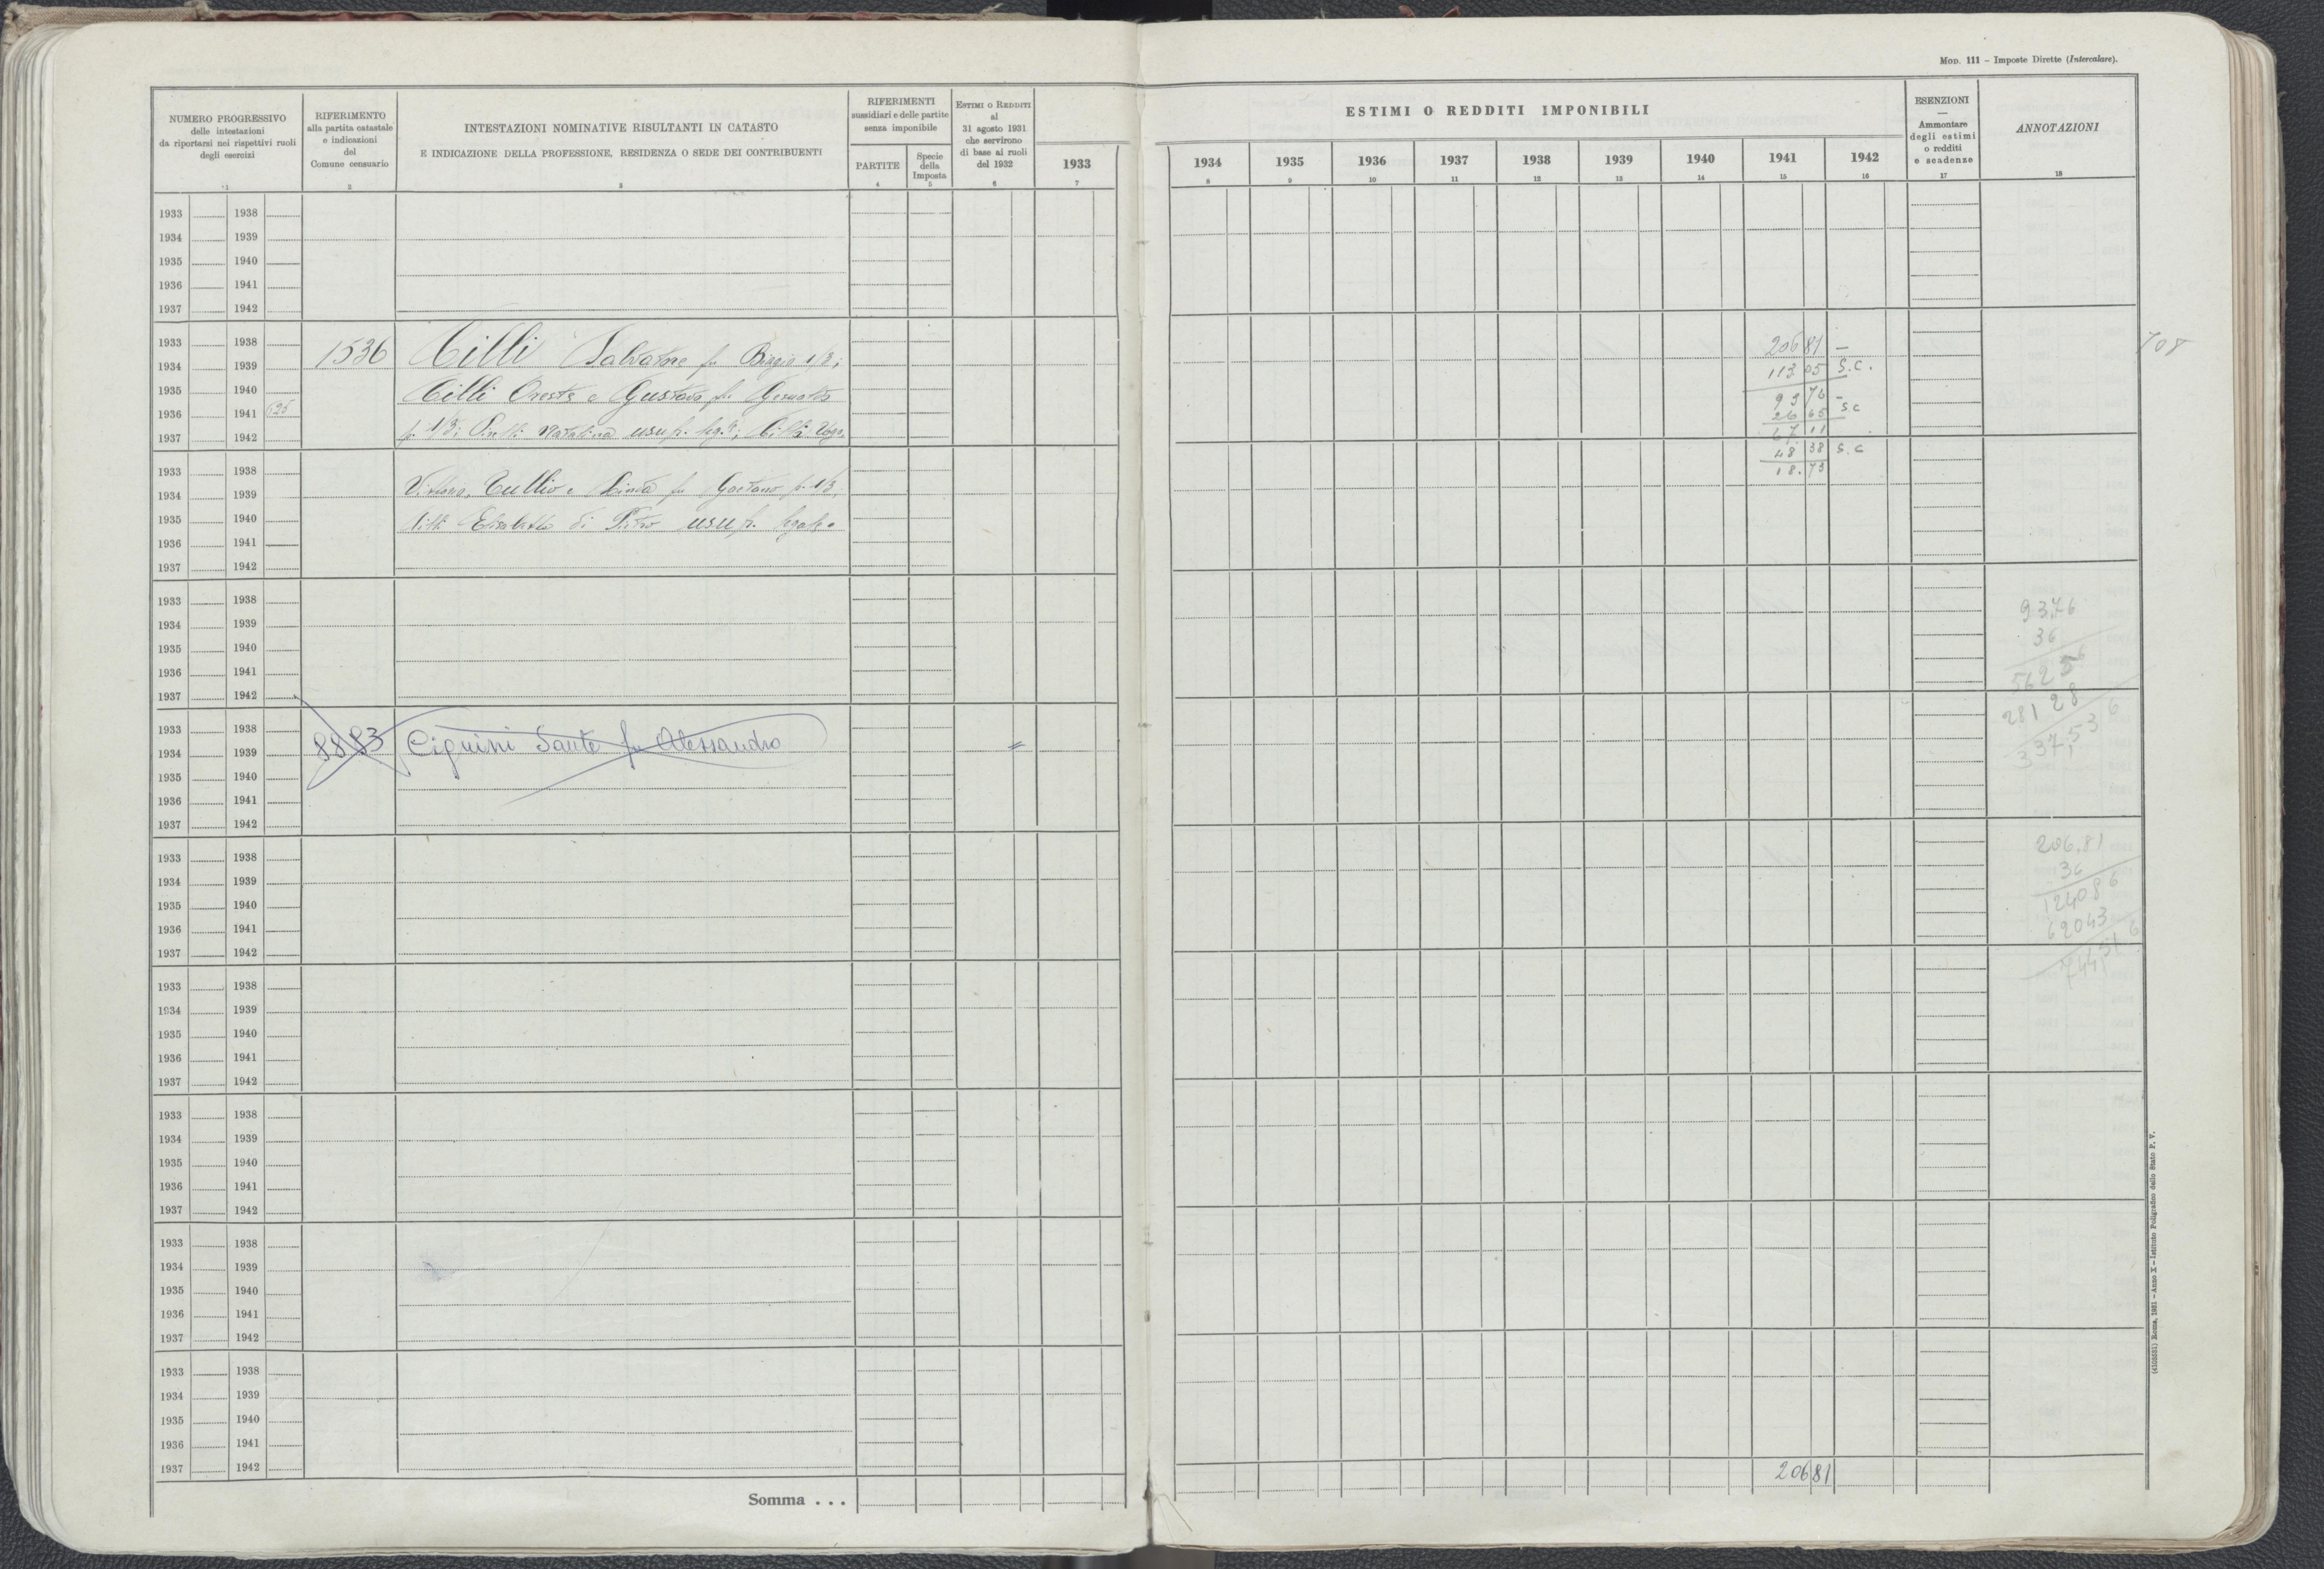 MOD. 111 – Imposte Dirette (Intercalare).
NUMERO PROGRESSIVO
delle intestazioni
da riportarsi nei rispettivi ruoli
degli esercizi
1
RIFERIMENTO
alla partita catastale
e indicazioni
del
Comune censuario
2
INTESTAZIONI NOMINATIVE RISULTANTI IN CATASTO
E INDICAZIONE DELLA PROFESSIONE, RESIDENZA O SEDE DEI CONTRIBUENTI
3
RIFERIMENTI
sussidiari e delle partite
senza imponibile
PARTITE
4
Specie
della
Imposta
5
ESTIMI O REDDITI
al
31 agosto 1931
che servirono
di base ai ruoli
del 1932
6
ESTIMI O REDDITI IMPONIBILI
1933 1934 1935 1936 1937 1938 1939 1940 1941 1942
7 8 9 10 11 12 13 14 15 16
ESENZIONI
—
Ammontare
degli estimi
o redditi
e scadenze
17
ANNOTAZIONI
18
1933 1938
1934 1939
1935 1940
1936 1941
1937 1942
1933 1938
1934 1939 1536 Cilli Salvatore fu Biagio 1/3; 206 81 —
708
113 05 S.C.
1935 1940 Cilli Oreste e Gustavo fu
93 76 —
1936 1941 625
26 65 S.C
1937 1942 p. 1/3; Natalina usuf. leg.; Cilli Ugo,
67 11
1933 1938
48 38 S.C
18.73
1934 1939 Tullio e Linda fu Gaetano p. 1/3,
1935 1940 Cilli Elisabetta di Pietro usuf. legale
1936 1941
1937 1942
1933 1938
1934 1939
1935 1940
1936 1941
1937 1942
93.76
36
5625 6
281 28
337,53 6
1933 1938
1934 1939 8883 Ciquini Sante fu Alessandro
1935 1940
1936 1941
1937 1942
1933 1938
1934 1939
1935 1940
1936 1941
1937 1942
206.81
36
12408 6
62043
7445,1 6
1933 1938
1934 1939
1935 1940
1936 1941
1937 1942
1933 1938
1934 1939
1935 1940
1936 1941
1937 1942
1933 1938
1934 1939
1935 1940
1936 1941
1937 1942
1933 1938
1934 1939
1935 1940
1936 1941
1937 1942
206 81
Somma . . .
(4103531) Roma, 1931 – Anno X – Istituto Poligrafico dello Stato P. V.